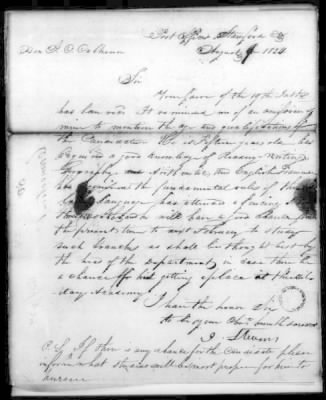 Post Office Stanford
August 9 1824
Hon. J. C. Calhoun
Sir
Your favor of the 19th
has been recd. It reminded me of an omission of
mine to mention the age and qualifications of
the Candidate. He is Fifteen years old has
required a good knowledge of Reading Writing
Geography and Arithmetic and English Grammar
the fundamental rules of
Language, has attended a
will have a good chance from
the present time to next February to study
such branches as shall be thought best by
the head of the department, in case there be
a chance of his getting a place at the Mili-
tary Academy
I have the honor Sir
to be your Obt. humble servant
J. Stevens
P.S. If there is any chance for the candidate please
inform what studies will be most proper for him to
pursue